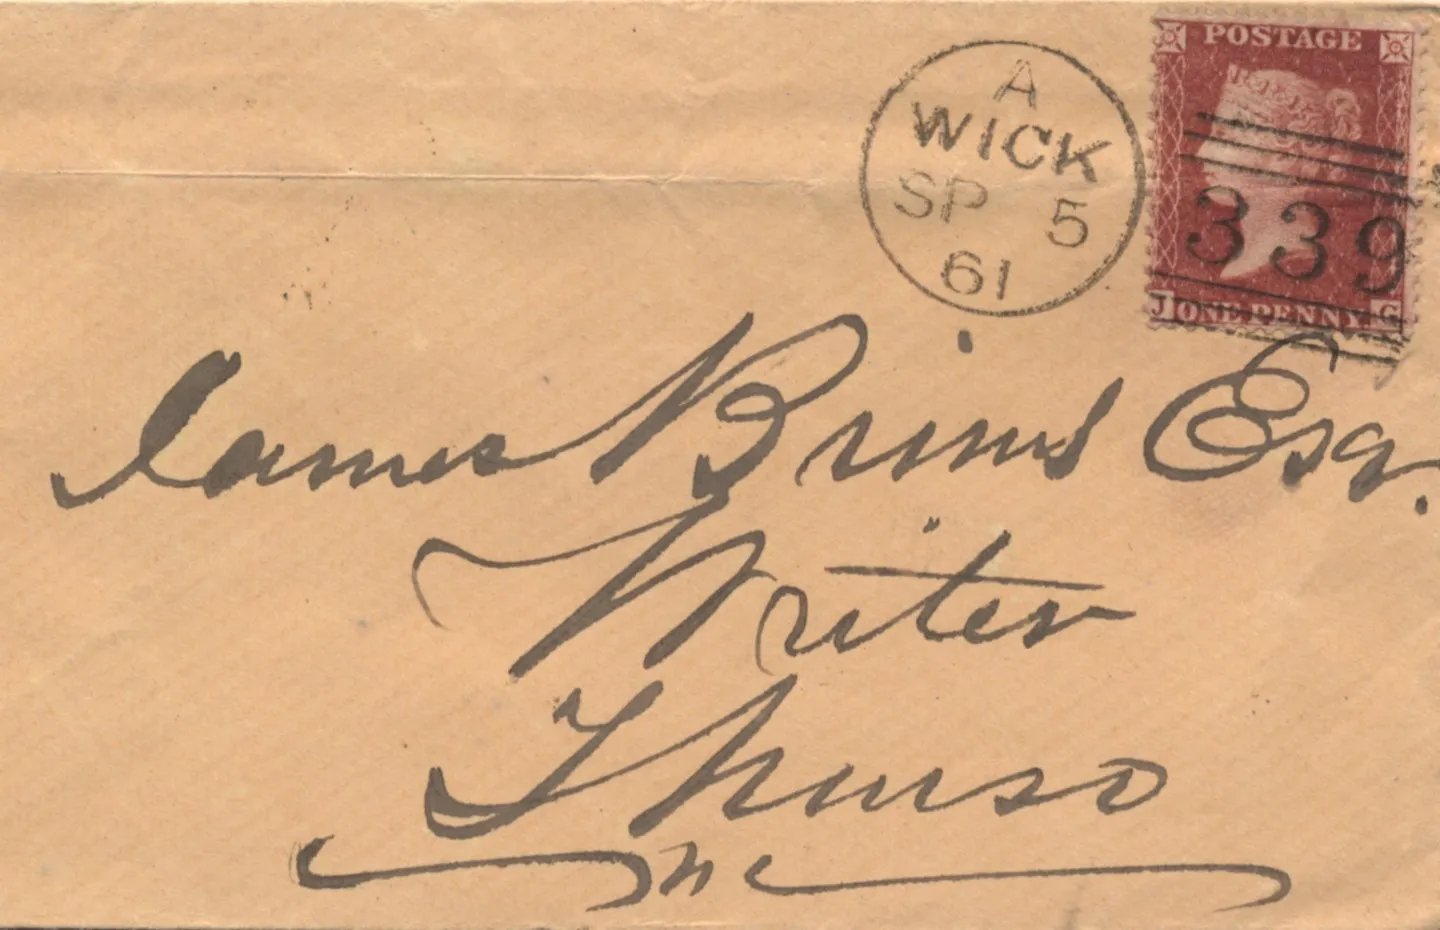 POSTAGE
A
WICK
SP 5
61
339
J ONE PENNY G
James Brims Esq.
Writer
Thurso